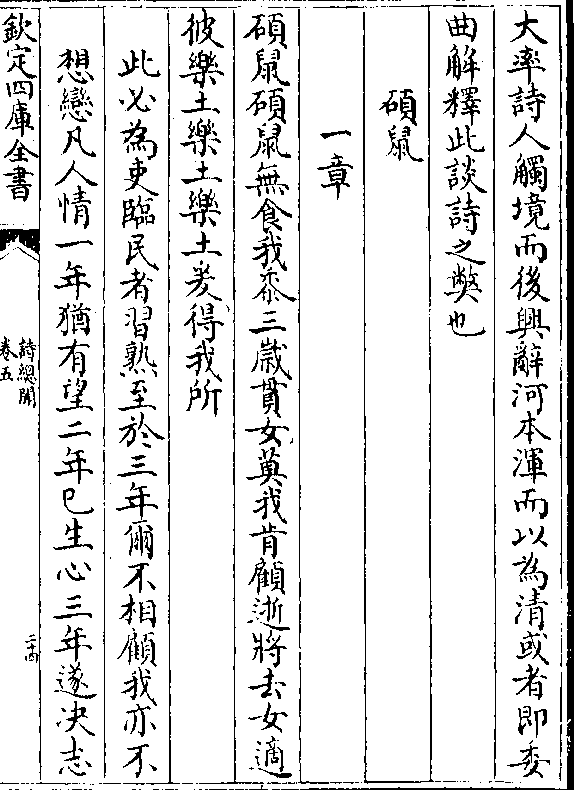 大率詩人觸境而後興辭河本渾而以為清或者即委
曲解釋此談詩之弊也
碩鼠
一章
碩鼠碩鼠無食我黍三嵗貫女莫我肯顧逝將去女適
彼樂土樂土樂土爰得我所
此必為吏臨民者習熟至於三年爾不相顧我亦不
想戀凡人情一年猶有望二年已生心三年遂決志
欽定四庫全書
詩總聞
卷五
二十四